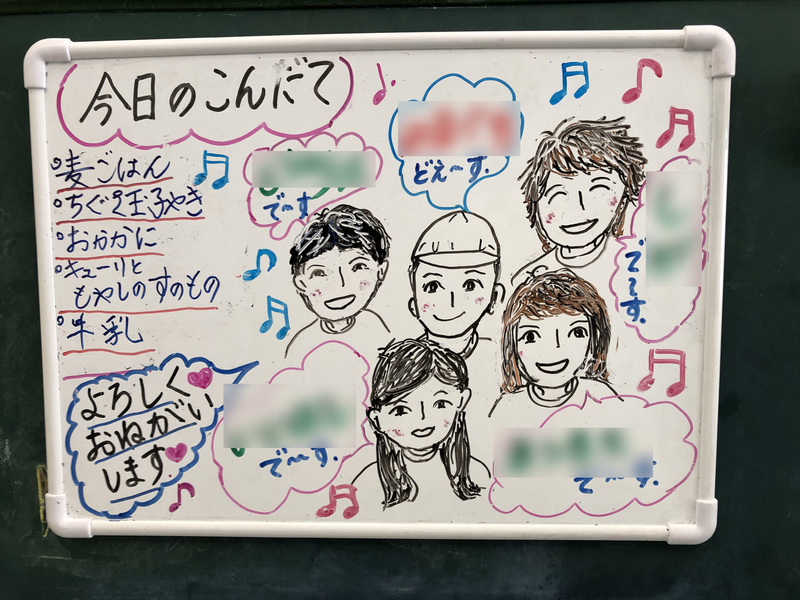 今日のこんだて
麦ごはん
ちぐさ玉子やき
おかかに
キューリと
もやしのすのもの
牛乳
よろしく
おねがい
します
で〜す
どえ〜す.
で〜す.
で〜す.
で〜す.